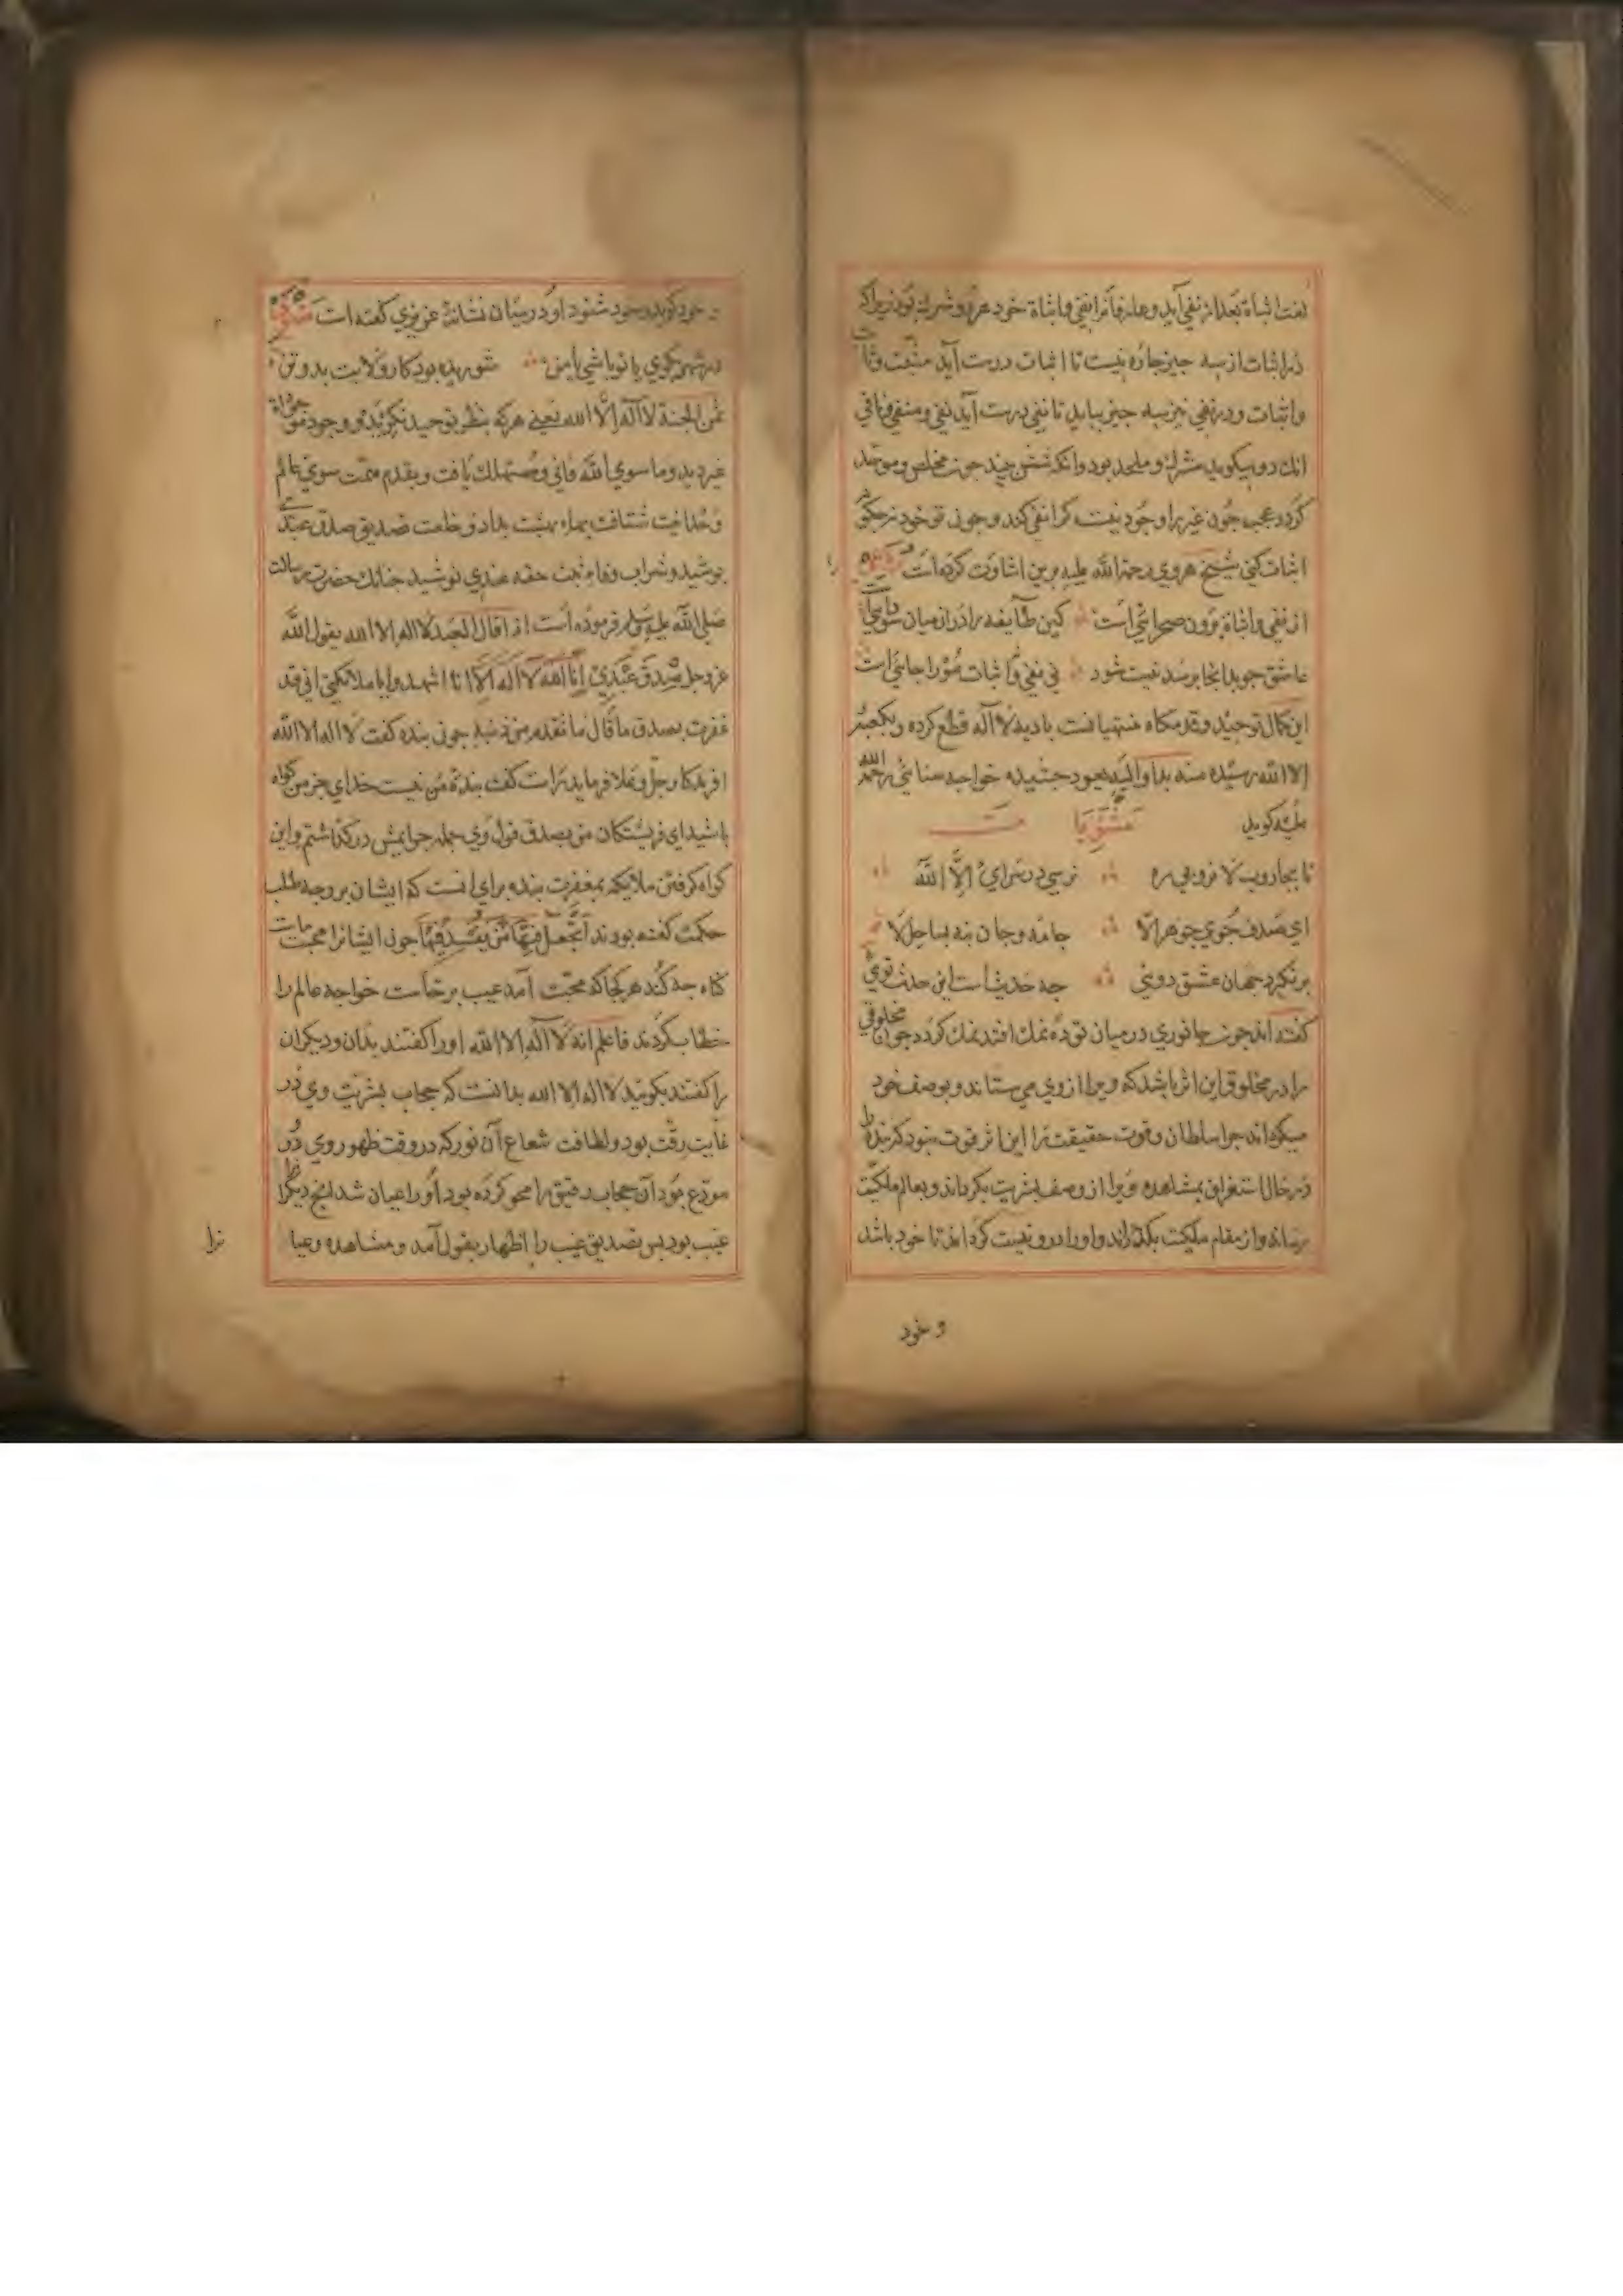 لغت اثباة بعد از نفی آید و عارفانرا نفی و اثباة خود هر دو شرك بود زیراك
در اثبات از سه چیز چاره نیست تا اثبات درست آید مثبت و اثبات
و اثبات و در نفی نیز سه چیز بباید تا نفی درست آید نفی و منفی و نافی
انك دو میگوید مشرك و ملحد بود وانکه شش چند چون مخلص و موحد
کردد عجب چون غیر را وجود نیست کرا نفی کند و چون تو خود نه
اثبات کنی شیخ هروی رحمة الله علیه برین اشاوت کرده است
از نفی و اثباة برون صحرائی است کین طایفه را در آن میان سودایی است
عاشق چو بدانجا برسد نیست شود نی نفی و اثبات مورا جایی است
این کمال توحید و قدمکاه منتهیانست بادیه لا آله قطع کرده و بکعبه
الا الله رسیده منه بدا و الیه یعود چشیده خواجه سنائی رحمة الله
علیه کوید
تا بجاروب لا نروبی ره نرسی در سرای الا الله
ای صدف جوی جوهر الا جامه و جان بنه بساحل لا
بر نکیرد جهان عشق دوئی چه حدیث است این حدیث توئی
کفته اند چون جانوری در میان توده نمك افتد نمك کردد چون مخلوقی
را در مخلوقی این اثر باشد که ویرا از وی می ستاند و بوصف خود
میکرداند چرا سلطان و قوت حقیقت را این اثر قوت نبود که بنده را
در حال استغراق بمشاهده ویرا از وصف بشریت بکرداند و بعالم ملکیت
رساند و از مقام ملکیت بکذراند و اورا درو نیست کرداند تا خود باشد
و خود
خود کوید و خود شنود او در میان نشانه عزیزی کفته است
در شهر بکوی یا تو باشی یا من شوریده بود کار ولایت بدو تن
ثمن الجنة لا آله الا الله یعنی هرکه بنظر توحید نکوید و وجود
غیر دید و ما سوی الله فانی و مستهلك یافت و بقدم همت سوی عالم
وحدانیت شتافت بهاء بهشت بداد و خلعت تصدیق صدق عبدی
بپوشید و شراب وفا نوشید چنانك حضرت رسالت
صلی الله علیه وسلم فرموده است اذا قال العبد لا اله الا الله یقول الله
عز وجل صدق عبدی انا الله لا اله الا انا اشهدوا یا ملائکتی انی قد
غفرت بصدق ما قال ما تقدم من ذنبه چون بنده کفت لا اله الا الله
افریدکار جل و علا فرماید راست کفت بنده من نیست خدای جز من کواه
باشید ای فریشتکان من بصدق قول وی جمله جرایمش درکذاشتم و این
کواه کرفتن ملایکه بمغفرت بنده برای انست که ایشان بر وجه طلب
حکمت کفته بودند اتجعل فیها من یفسد فیها چون ایشانرا محبت
کناه چه کند هر کجا که محبت آمد عیب برخاست خواجه عالم را
خطاب کردند فاعلم انه لا اله الا الله اورا کفتند بدان و دیکران
را کفتند بکوئید لا اله الا الله بدانست که حجاب بشریت وی در
غایت رقت بود و لطافت شعاع آن نور که در وقت ظهور روی در
مودع بود آن حجاب رقیق را محو کرده بود اورا عیان شد انچ دیکرانرا
غیب بود پس تصدیق غیب را اظهار بقول آمد و مشاهده و عیا
نرا